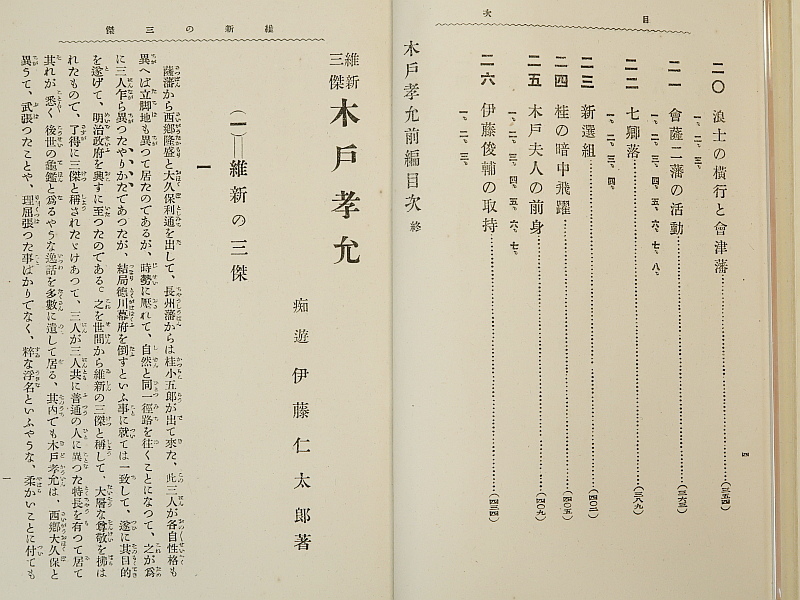 目次
二〇 浪士の横行と會津藩……(三五四)
一、二、三、
二一 會薩二藩の活動……(三六三)
一、二、三、四、五、六、七、八、
二二 七卿落……(三八九)
一、二、三、四、
二三 新選組……(四〇二)
二四 桂の暗中飛躍……(四〇五)
二五 木戸夫人の前身……(四〇九)
一、二、三、四、五、六、七、
二六 伊藤俊輔の取持……(四三四)
一、二、三、
木戸孝允前編目次 終
四
維新の三傑
維新三傑 木戸孝允
痴遊 伊藤仁太郎著
(一)=維新の三傑
一
薩藩から西郷隆盛と大久保利通を出して、長州藩からは桂小五郎が出て來た、此三人が各自性格も
異へば立脚地も異つて居たのであるが、時勢に壓れて、自然と同一徑路を往くことになつて、之が爲
に三人乍ら異つたやりかたであつたが、結局德川幕府を倒すといふ事に就ては一致して、遂に其目的
を遂げて、明治政府を興すに至つたのである。之を世間から維新の三傑と稱して、大層な尊敬を拂は
れたもので、了得に三傑と稱されたゞけあつて、三人が三人共に普通の人に異つた特長を有つて居て
其れが悉く後世の龜鑑と爲るやうな逸話を多數に遺して居る、其内でも木戸孝允は、西郷大久保と
異うて、武張つたことや、理屈張つた事ばかりでなく、粹な浮名といふやうな、柔かいことに付ても
一